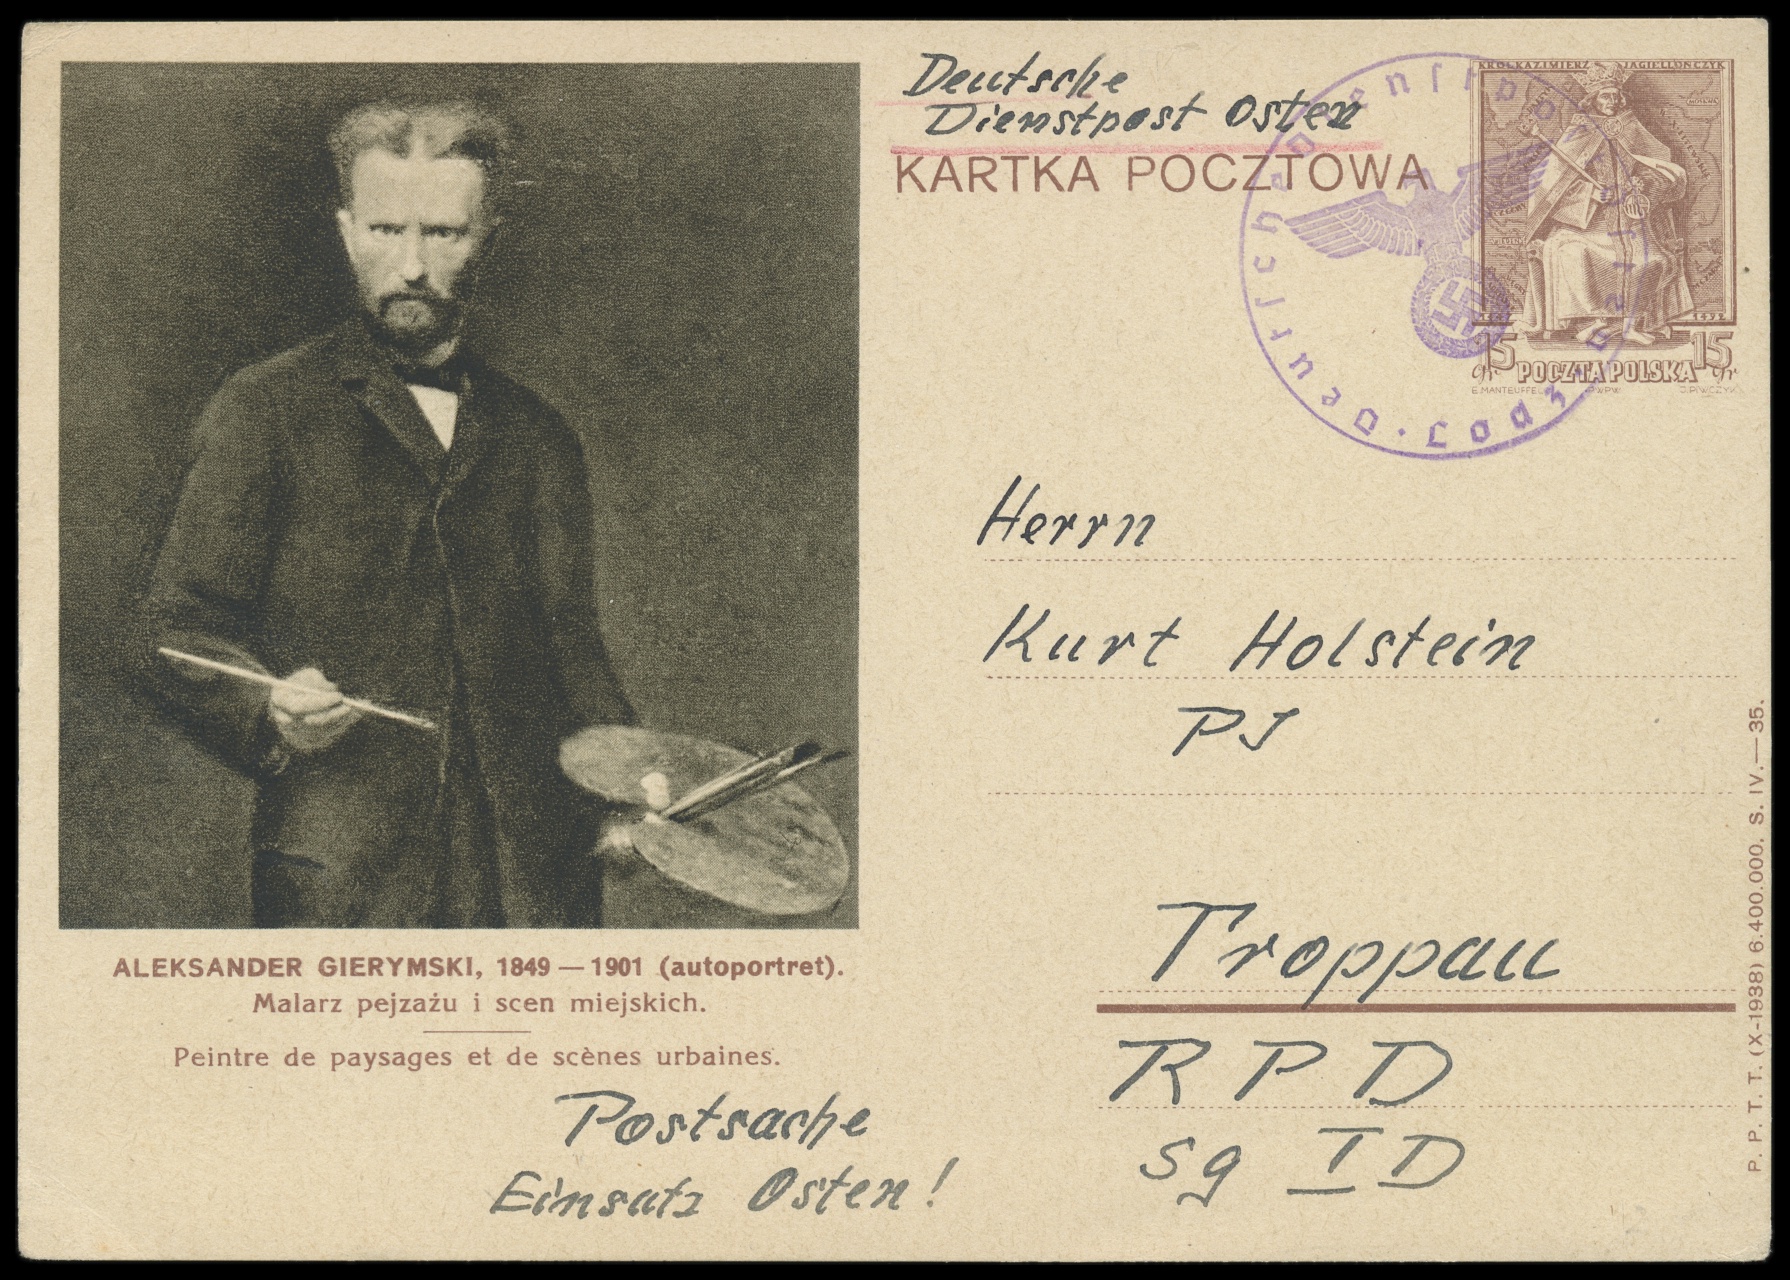 Deutsche
Dienstpost Osten
KARTKA POCZTOWA
KRÓL KAZIMIERZ JAGIELLOŃCZYK
1492
15 gr POCZTA POLSKA 15 gr
E. MANTEUFFEL PWPW
Deutsche Dienstpost Osten · Lodz ·
Herrn
Kurt Holstein
PJ
Troppau
RPD
Sg ID
ALEKSANDER GIERYMSKI, 1849 — 1901 (autoportret).
Malarz pejzażu i scen miejskich.
Peintre de paysages et de scènes urbaines.
Postsache
Einsatz Osten!
P. P. T. T. (X-1938) 6.400.000. S. IV.—35.